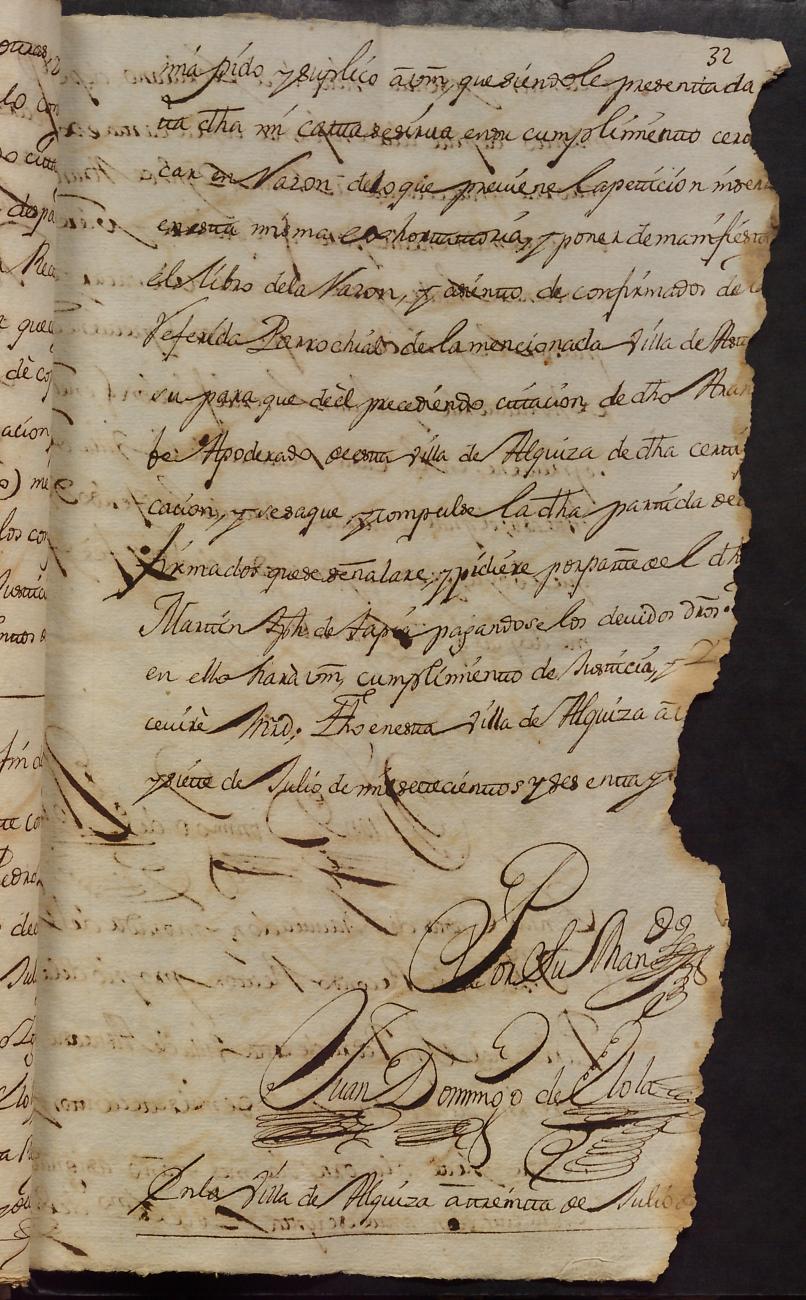 32
ma pido y suplico a vm, que siendole presentada
ta dha mi carta se sirva en su cumplimiento cer
car en Razon de lo que previene la peticion inser
en esta misma exhortatoria, y poner de manifies
el libro de la Razon, y asiento de confirmados de
referida Parrochial de la mencionada Villa de As
su para que de el precediendo citacion de dho Aran
be Apoderado de esta villa de Alquiza de dha certi
cacion, y se saque y compulse la dha partida de
firmados que se señalare, y pidiere por parte del dh
Martin Jph de Tapia pagandose los devidos dros.
en ello hará vm, cumplimiento de Justicia, y
cevire Mrd, Fho en esta Villa de Alquiza a
y siete de Julio de mil settecientos y sesenta y
Por su Man
Juan Domingo de
En la Villa de Alquiza a treinta de Julio